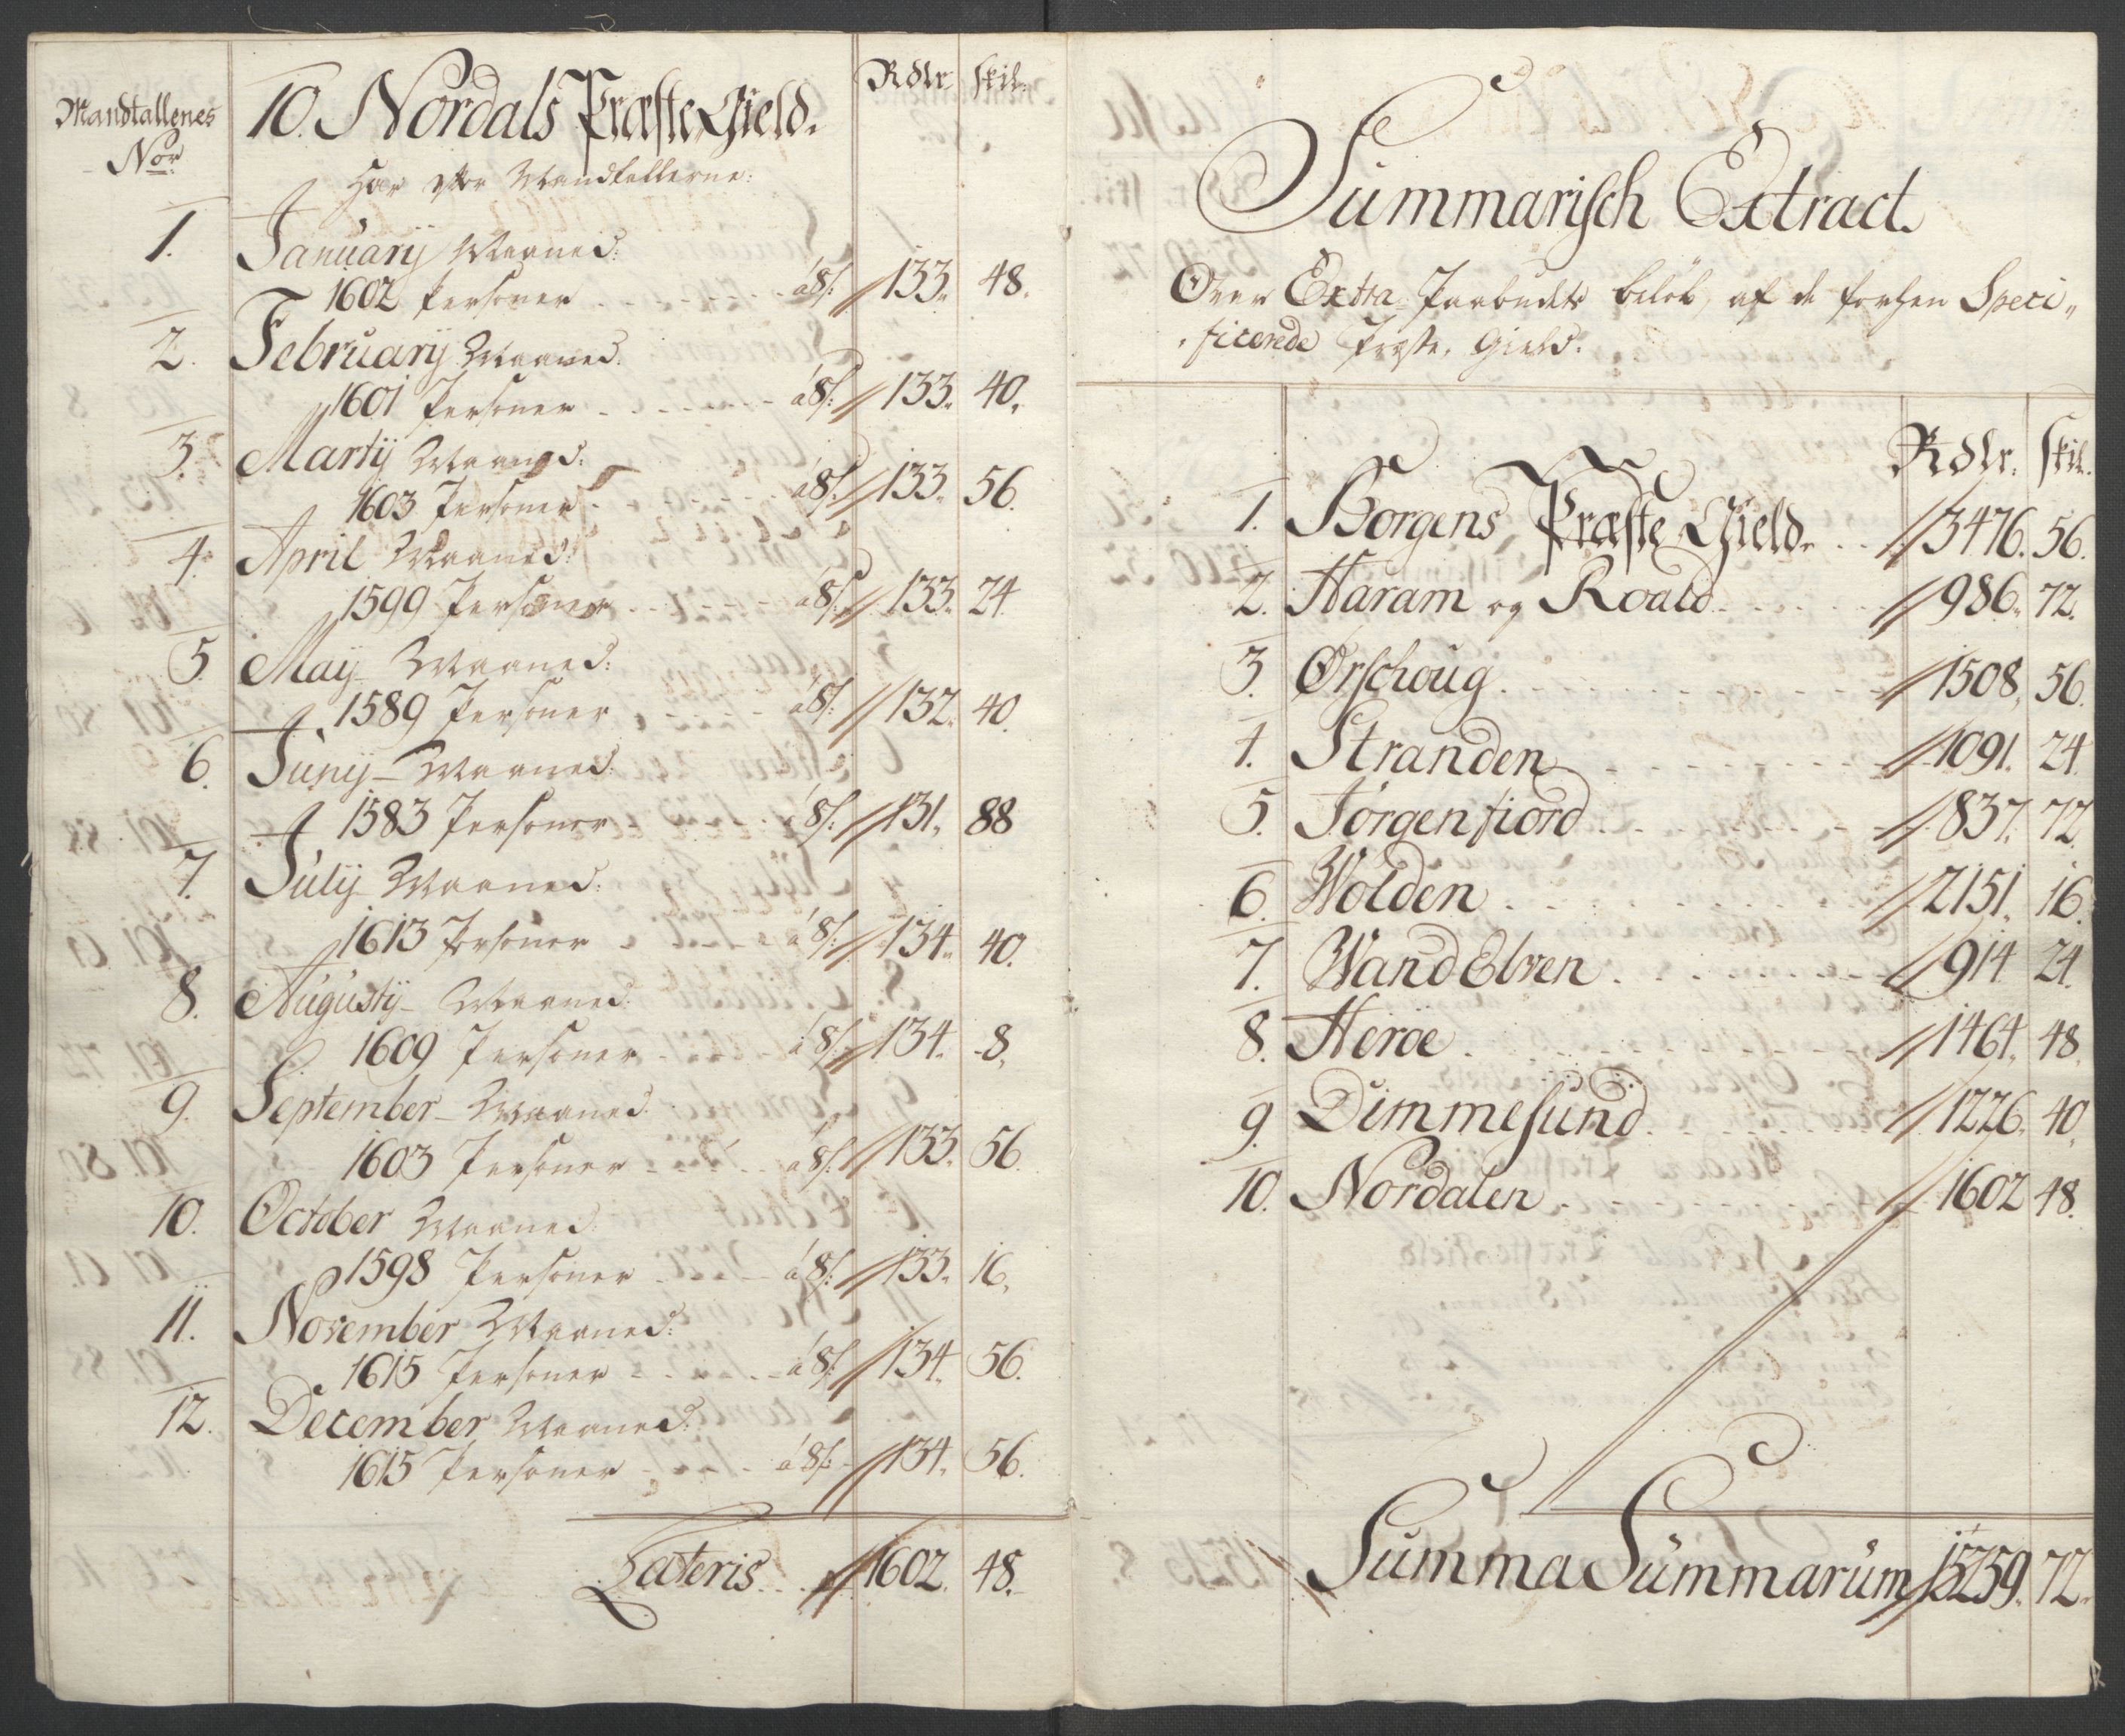 Mandtallenes
Nor
10. Nordals Præste Gield.
Rdlr skil.
Har efter Mandtallerne:
1. Januarij Maaned:
1602 Personer à 8s: 133. 48.
2. Februarij Maaned.
1601 Personer à 8s: 133. 40.
3. Martij Maaned:
1603 Personer à 8s: 133. 56.
4. April Maaned:
1599 Personer à 8s: 133. 24
5. Maij Maaned:
1589 Personer à 8s: 132. 40.
6. Junij Maaned.
1583 Personer à 8s: 131. 88
7. Julij Maaned:
1613 Personer à 8s: 134. 40.
8. Augustij Maaned.
1609 Personer à 8s: 134. 8.
9. September Maaned.
1603 Personer à 8s: 133. 56.
10. October Maaned.
1598 Personer à 8s: 133. 16.
11. November Maaned:
1615 Personer à 8s: 134. 56.
12. December Maaned:
1615 Personer à 8s: 134. 56.
Lateris 1602. 48.
Summarisch Extract.
Over Extra Paabudets beløb, af de forhen Speci„
ficerede Præste, Gield.
Rdlr. skil.
1. Borgens Præste Gield. 3476. 56.
2. Haram og Roald 986. 72.
3. Ørschoug 1508. 56.
4. Stranden 1091. 24.
5. Jørgenfiord 837. 72
6. Wolden 2151. 16.
7. Wand Elven 914 24.
8. Herøe 1464. 48.
9. Dimmesund 1226. 40.
10. Nordalen 1602 48.
Summa Summarum 15259. 72.